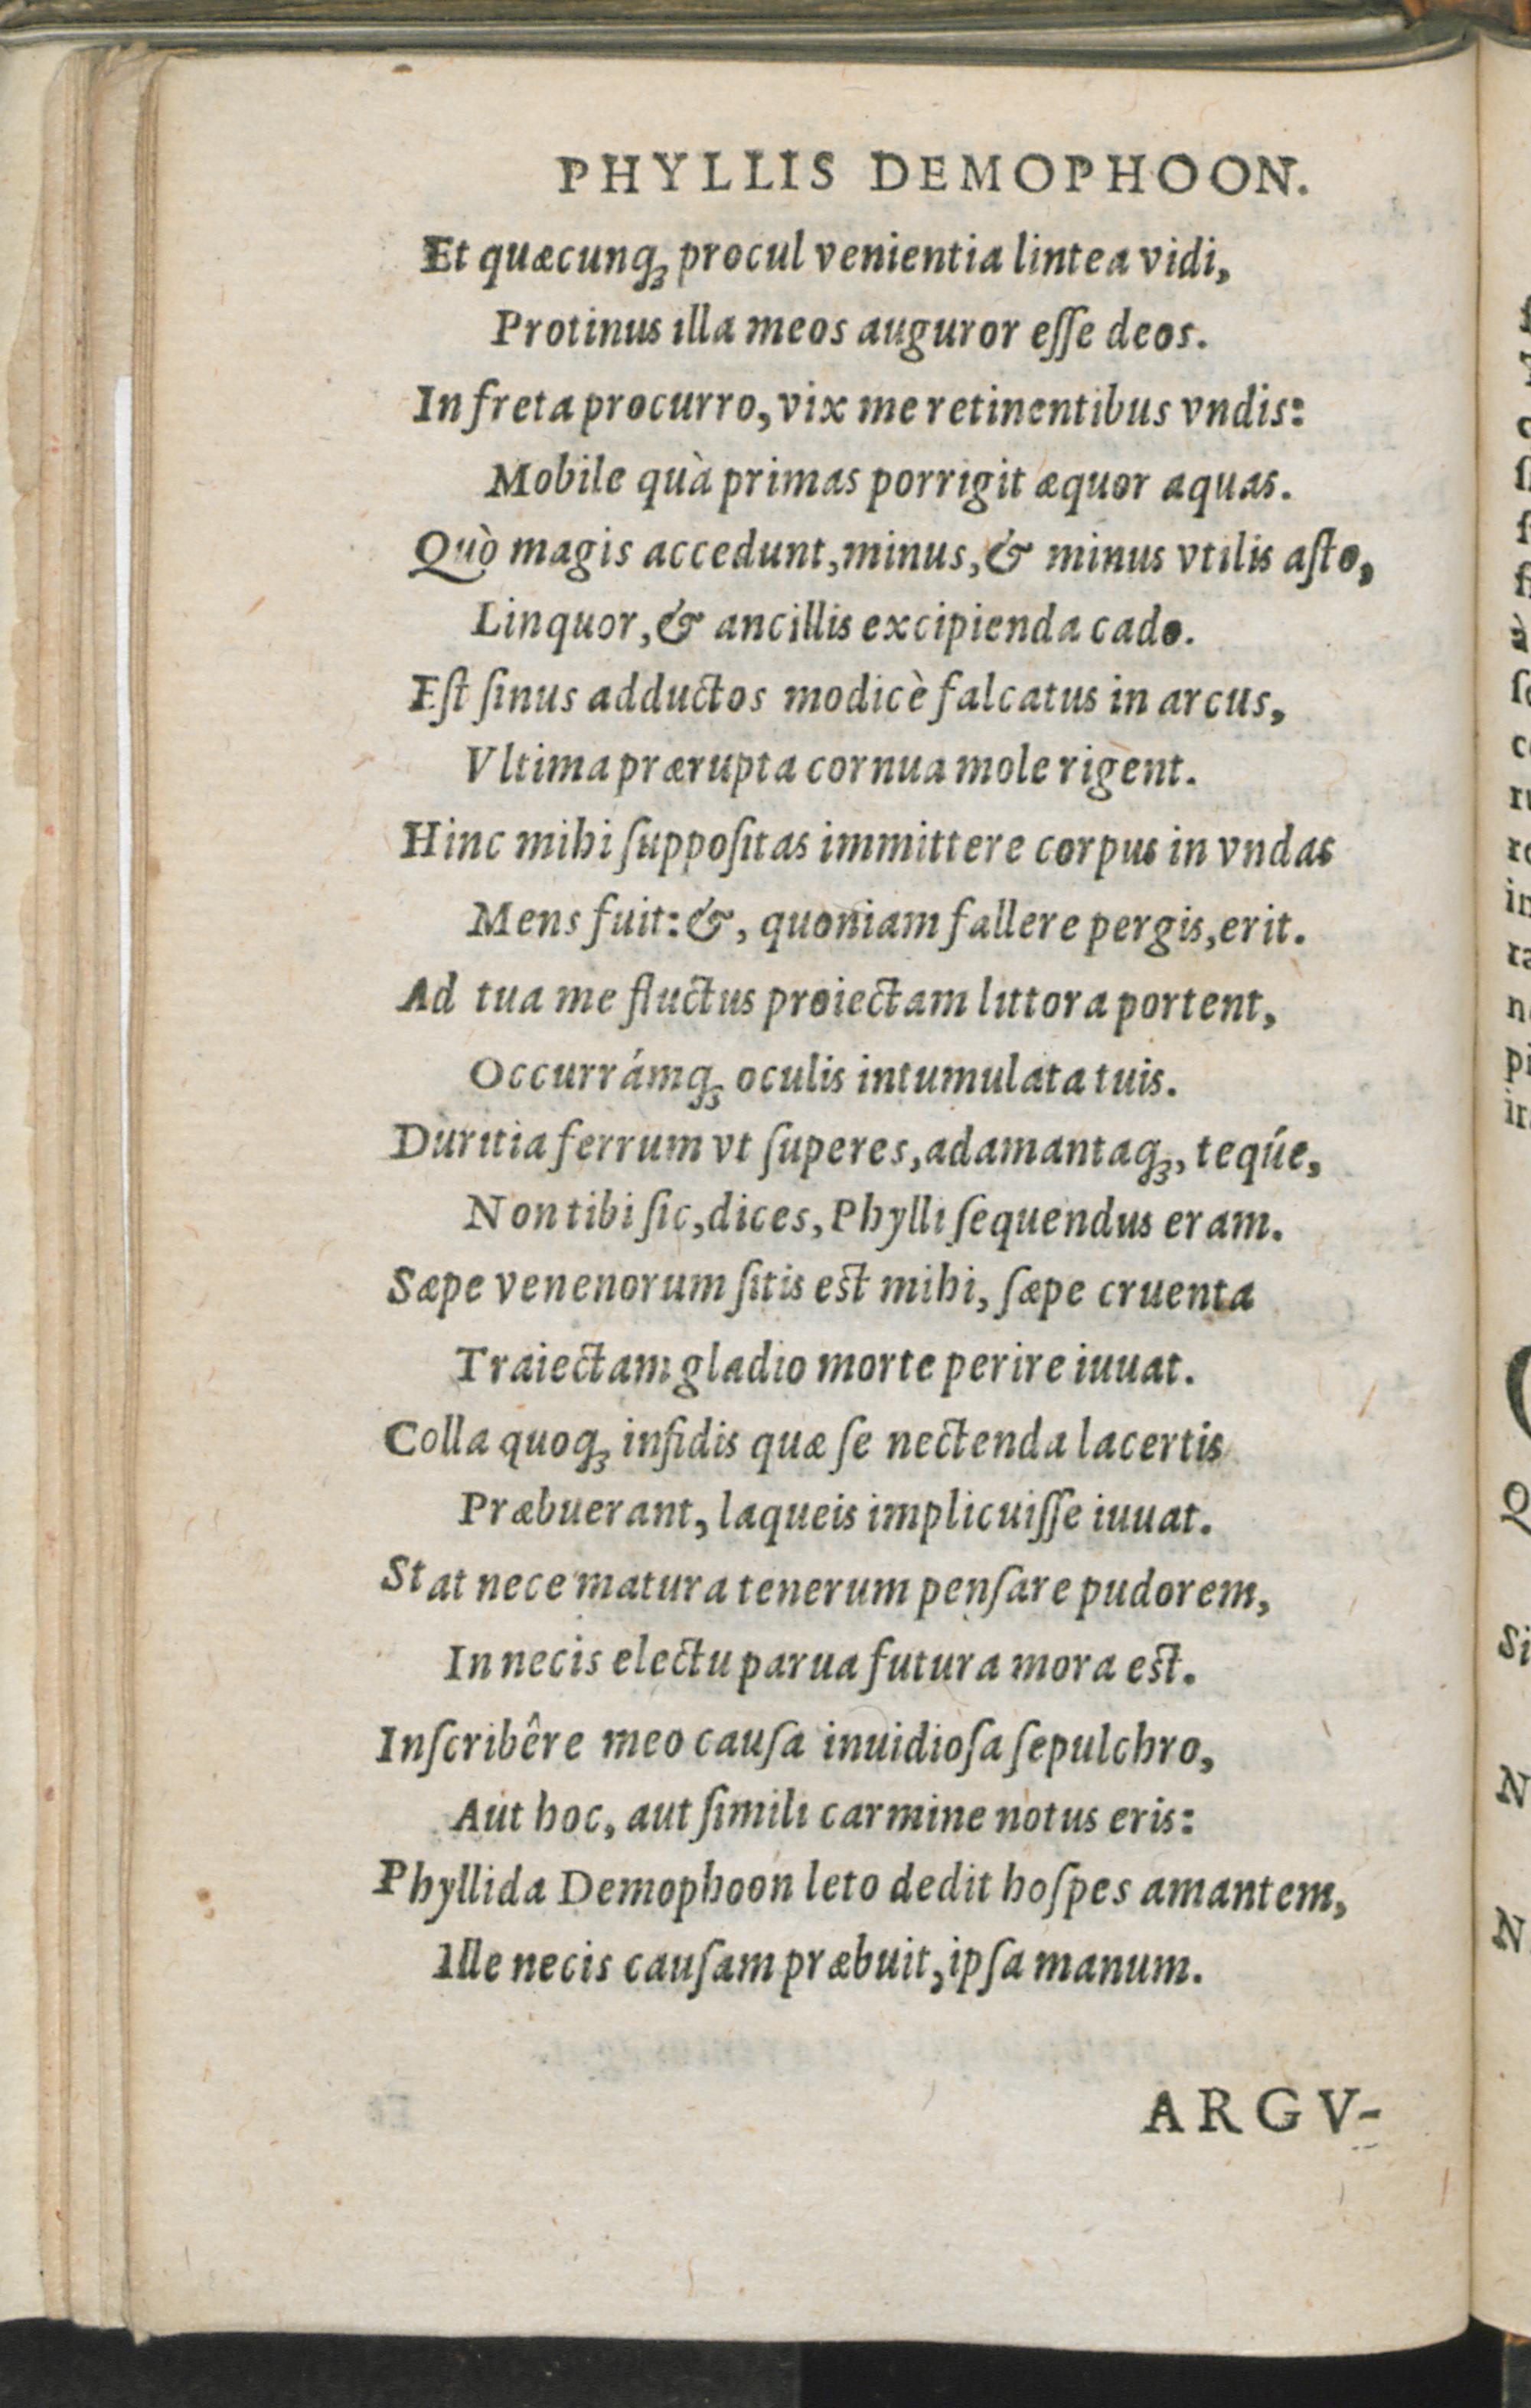 PHYLLIS DEMOPHOON.
Et quæcunqꝫ procul venientia lintea vidi,
Protinus illa meos auguror eſſe deos.
In freta procurro, vix me retinentibus vndis:
Mobile quà primas porrigit æquor aquas.
Quò magis accedunt, minus, & minus vtilis aſto,
Linquor, & ancillis excipienda cado.
Eſt ſinus adductos modicè falcatus in arcus,
Vltima prærupta cornua mole rigent.
Hinc mihi ſuppoſitas immittere corpus in vndas
Mens fuit: &, quoniam fallere pergis, erit.
Ad tua me fluctus proiectam littora portent,
Occurrámqꝫ oculis intumulata tuis.
Duritia ferrum vt ſuperes, adamantaqꝫ, teqúe,
Non tibi ſic, dices, Phylli ſequendus eram.
Sæpe venenorum ſitis eſt mihi, ſæpe cruenta
Traiectam gladio morte perire iuuat.
Colla quoqꝫ infidis quæ ſe nectenda lacertis
Præbuerant, laqueis implicuiſſe iuuat.
Stat nece matura tenerum penſare pudorem,
In necis electu parua futura mora eſt.
Inſcribêre meo cauſa inuidioſa ſepulchro,
Aut hoc, aut ſimili carmine notus eris:
Phyllida Demophoon leto dedit hoſpes amantem,
Ille necis cauſam præbuit, ipſa manum.
ARGV-